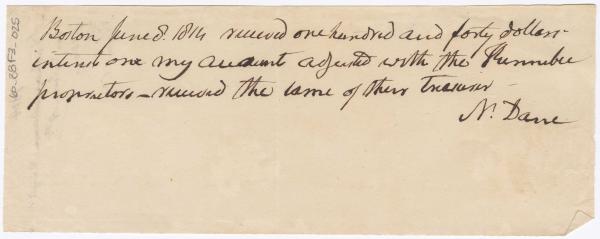 Boston June 8. 1814 received one hundred and forty dollars
interest one my account adjusted with the Kennebec
proprietors - received the same of their Treasurer -
N. Dane